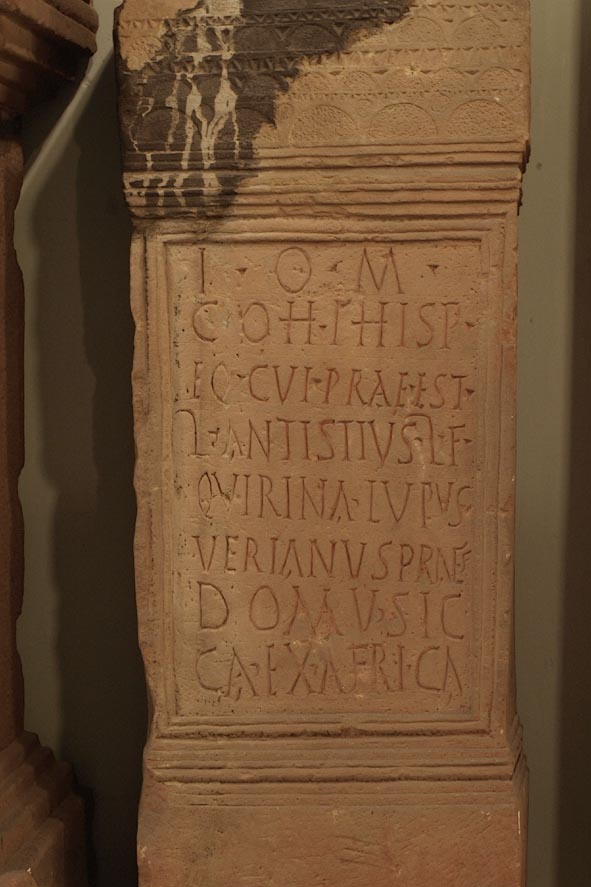 I · O · M ·
COH · I · HISP ·
EQ · CVI · PRAEEST ·
L · ANTISTIVS · L · F ·
QVIRINA · LVPVS
VERIANVS PRAEF
DOMV · SIC
CA · EX · AFRICA